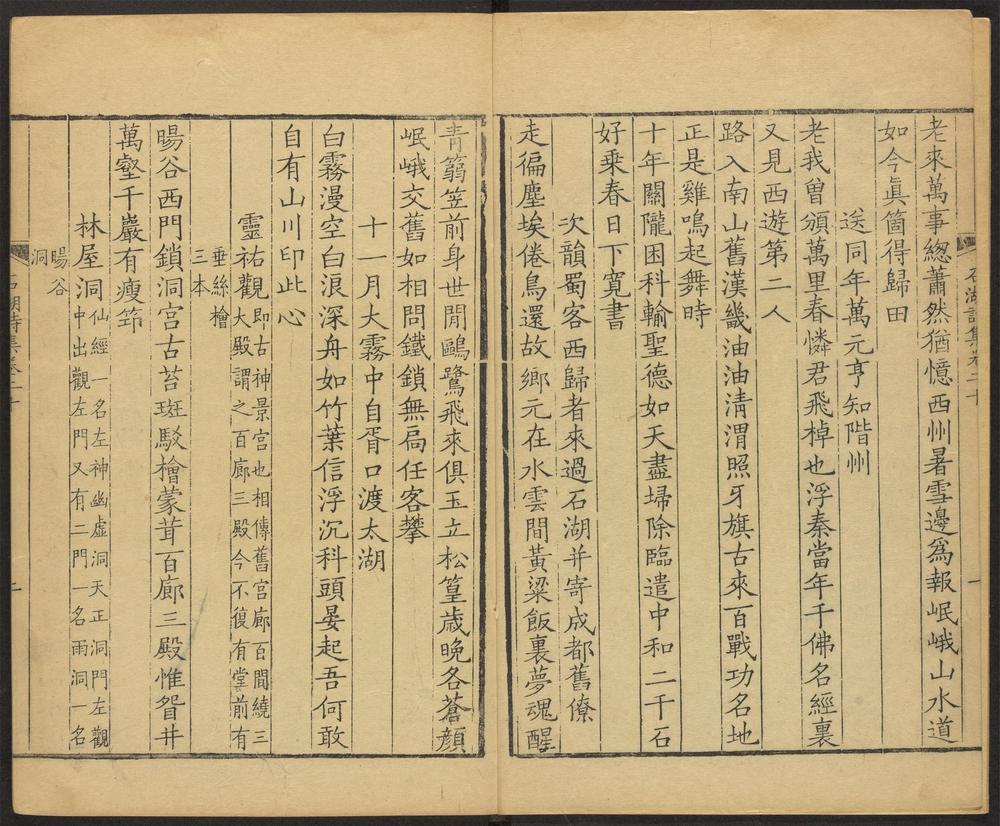 老來萬事緫蕭然猶憶西州暑雪邊爲報岷峨山水道
如今眞箇得歸田
送同年萬元亨知階州
老我曾頒萬里春憐君飛棹也浮秦當年千佛名經裏
又見西遊第二人
路入南山舊漢畿油油淸渭照牙旗古來百戰功名地
正是雞鳴起舞時
十年關隴困科輸聖德如天盡埽除臨遣中和二千石
好乘春日下寬書
次韻蜀客西歸者來過石湖并寄成都舊僚
走徧塵埃倦鳥還故鄉元在水雲間黃粱飯裏夢魂醒
青篛笠前身世閒鷗鷺飛來俱玉立松篁歲晚各蒼顔
岷峨交舊如相問鐵鎖無扃任客攀
十一月大霧中自胥口渡太湖
白霧漫空白浪深舟如竹葉信浮沉科頭晏起吾何敢
自有山川印此心
靈祐觀卽古神景宮也相傳舊宮廊百間繞三
大殿謂之百廊三殿今不復有堂前有
垂絲檜
三本
暘谷西門鎖洞宮古苔斑駁檜蒙茸百廊三殿惟眢井
萬壑千巖有瘦筇
林屋洞仙經一名左神幽虛洞天正洞門左觀
中出觀左門又有二門一名雨洞一名
暘谷
洞
石湖詩集卷二十
一